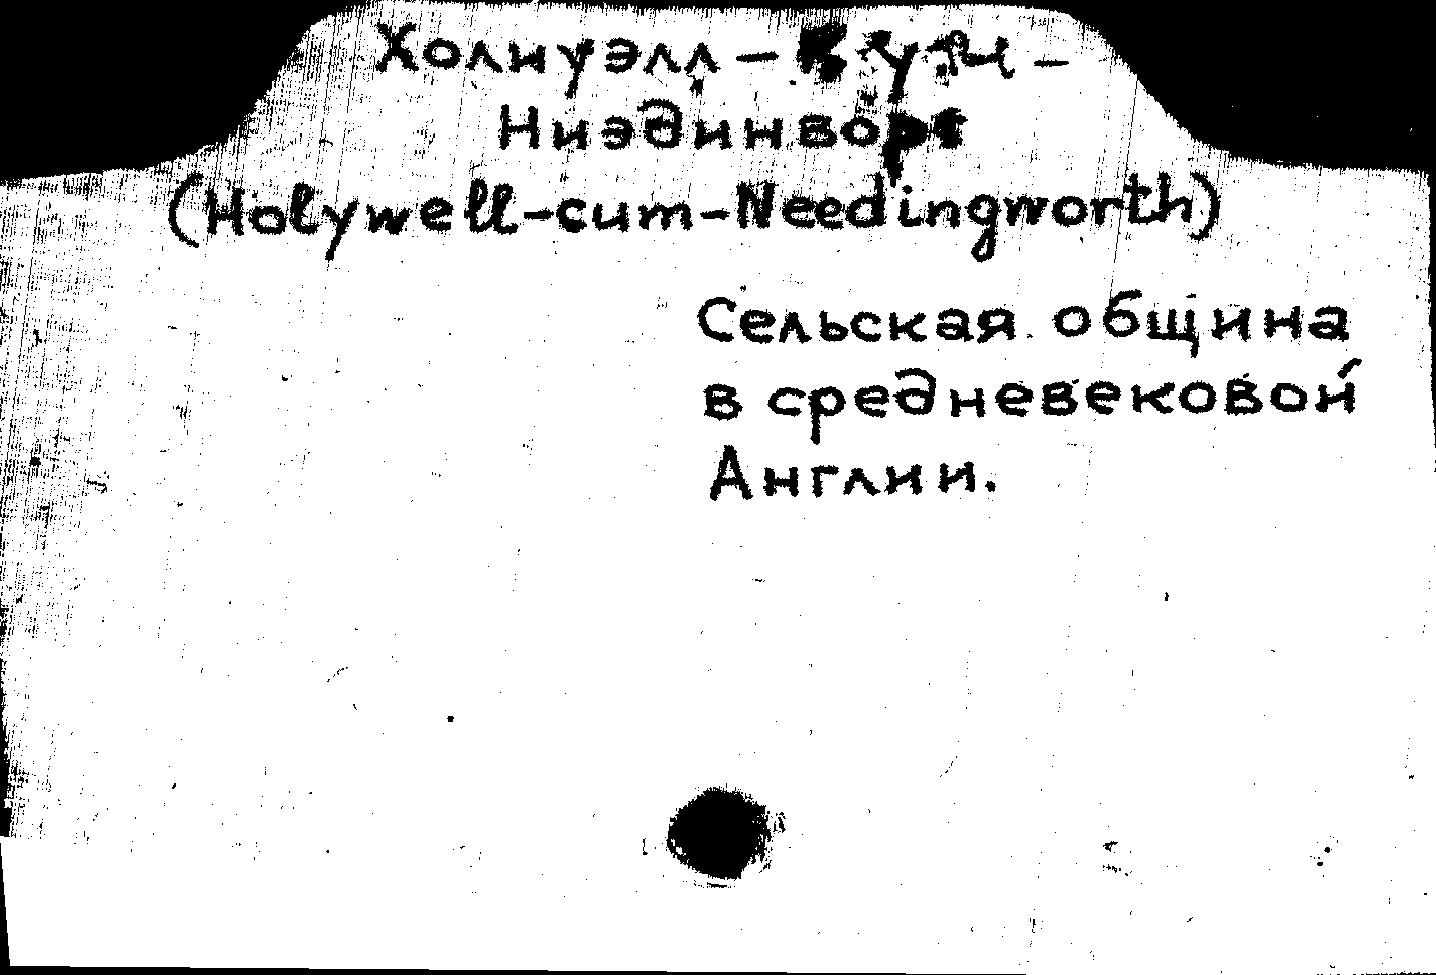 Холиуэлл-кум-
Ниэдинворт
(Holywell-cum-Needingworth)
Сельская община
в средневековой
Англии.